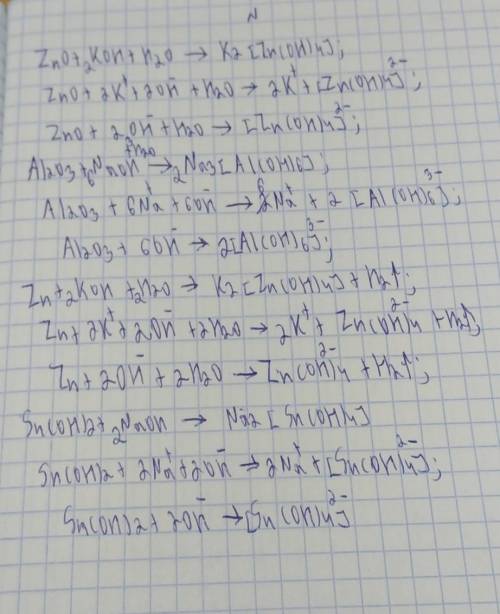 N
ZnO+2KOH+H2O → K2[Zn(OH)4];
ZnO+2K⁺+2OH⁻+H2O → 2K⁺+[Zn(OH)4]²⁻;
ZnO+2OH⁻+H2O → [Zn(OH)4]²⁻;
Al2O3+6NaOH+H2O → 2Na3[Al(OH)6];
Al2O3+6Na⁺+6OH⁻ → 6Na⁺+2[Al(OH)6]³⁻;
Al2O3+6OH⁻ → 2[Al(OH)6]³⁻;
Zn+2KOH+2H2O → K2[Zn(OH)4]+H2↑;
Zn+2K⁺+2OH⁻+2H2O → 2K⁺+Zn(OH)4²⁻+H2↑;
Zn+2OH⁻+2H2O → Zn(OH)4²⁻+H2↑;
Sn(OH)2+2NaOH → Na2[Sn(OH)4]
Sn(OH)2+2Na⁺+2OH⁻ → 2Na⁺+[Sn(OH)4]²⁻;
Sn(OH)2+2OH⁻ → [Sn(OH)4]²⁻